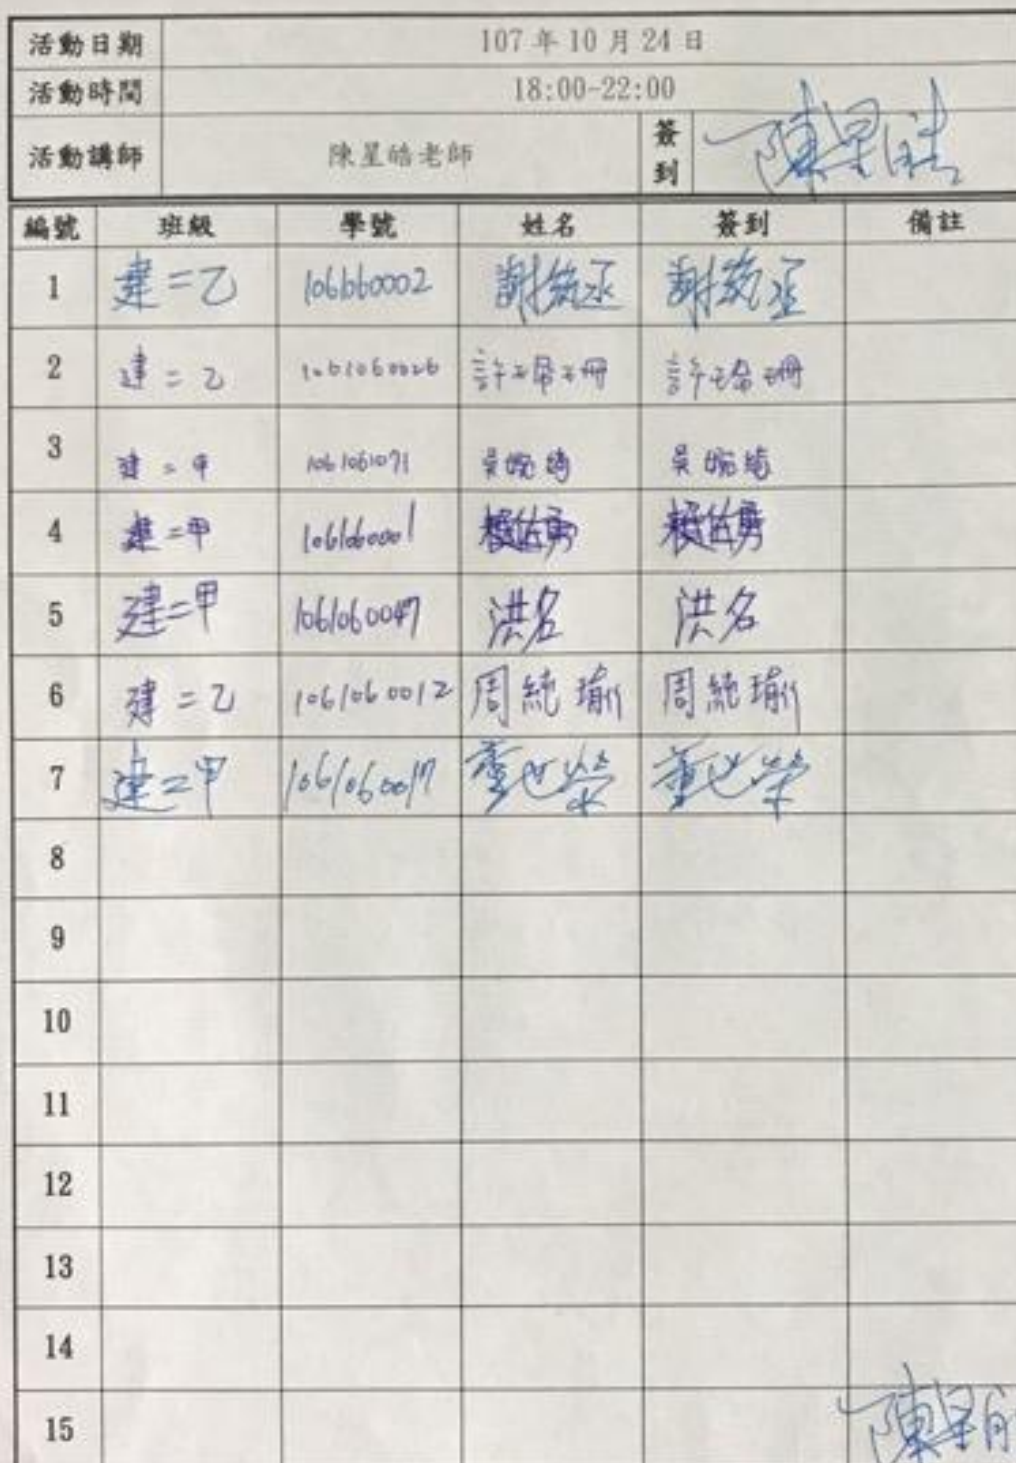 活動日期 107年10月24日
活動時間 18:00-22:00
活動講師 陳星皓老師 簽到 陳星皓
編號 班級 學號 姓名 簽到 備註
1 建二乙 106160002
2 建二乙 1061060026 許珆珊 許珆珊
3 建二甲 1061061071 吳婉綺 吳婉綺
4 建二甲 賴佐勇 賴佐勇
5 建二甲 1061060047 洪名 洪名
6 建二乙 1061060012 周純瑜 周純瑜
7 建二甲 1061060017 董世榮 董世榮
8
9
10
11
12
13
14
15